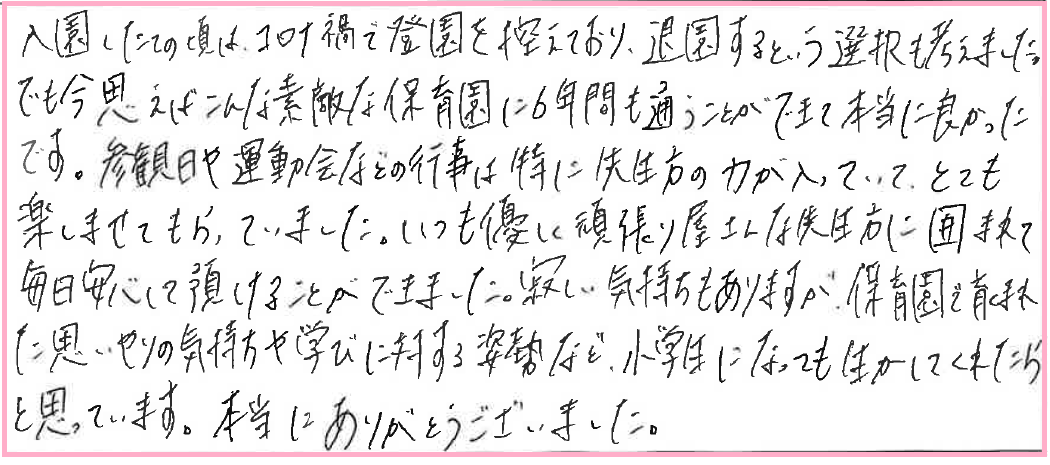 入園したての頃は、コロナ禍で登園を控えており、退園するという選択も考えました。
でも今思えばこんな素敵な保育園に6年間も通うことができて本当に良かった
です。参観日や運動会などの行事は特に先生方の力が入っていて、とても
楽しませてもらっていました。いつも優しく頑張り屋さんな先生方に囲まれて
毎日安心して預けることができました。寂しい気持ちもありますが、保育園で育まれ
た思いやりの気持ちや学びに対する姿勢など、小学生になっても生かしてくれたら
と思っています。本当にありがとうございました。